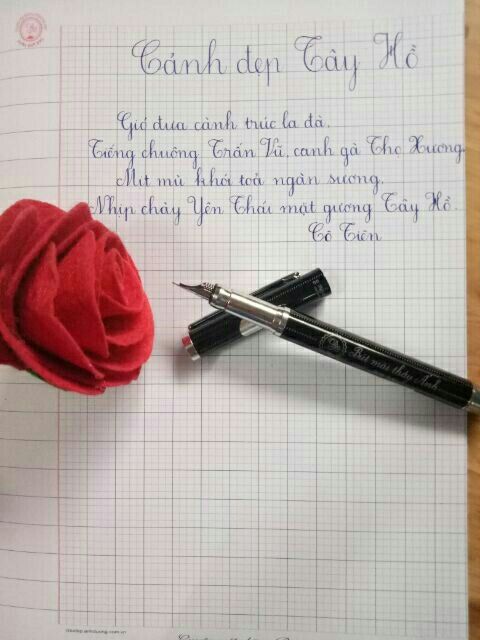 Cảnh đẹp Tây Hồ
Gió đưa cành trúc la đà,
Tiếng chuông Trấn Vũ, canh gà Thọ Xương.
Mịt mù khói toả ngàn sương,
Nhịp chày Yên Thái mặt gương Tây Hồ.
Cô Tiên
Bút mài thầy Ánh